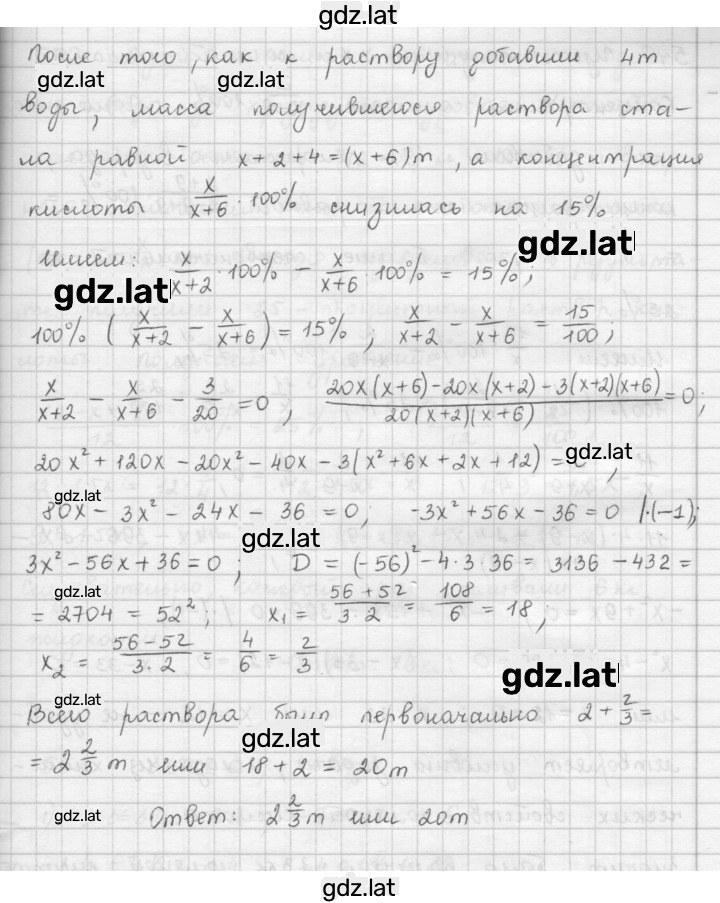 gdz.lat
После того, как к раствору добавили 4т
gdz.lat gdz.lat
воды, масса получившегося раствора ста-
ла равной x + 2 + 4 = (x + 6)т, а концентрация
кислоты x/(x+6) · 100% снизилась на 15%
gdz.lat
Имеем: x/(x+2) · 100% − x/(x+6) · 100% = 15%;
gdz.lat
100% (x/(x+2) − x/(x+6)) = 15%; x/(x+2) − x/(x+6) = 15/100;
x/(x+2) − x/(x+6) − 3/20 = 0, (20x(x+6) − 20x(x+2) − 3(x+2)(x+6))/(20(x+2)(x+6)) = 0;
20x² + 120x − 20x² − 40x − 3(x² + 6x + 2x + 12) = , gdz.lat
gdz.lat
80x − 3x² − 24x − 36 = 0; −3x² + 56x − 36 = 0 /·(−1);
gdz.lat
3x² − 56x + 36 = 0; D = (−56)² − 4·3 36 = 3136 − 432 =
gdz.lat
= 2704 = 52²; x₁ = (56 + 52)/(3·2) = 108/6 = 18,
x₂ = (56 − 52)/(3·2) = 4/6 = 2/3
gdz.lat
gdz.lat
Всего раствора было первоначально 2 + 2/3 =
gdz.lat
= 2 2/3 т или 18 + 2 = 20т
gdz.lat
Ответ: 2 2/3 т или 20т
gdz.lat